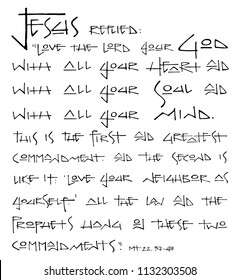 Jesus replied:
"Love the Lord your God
with all your heart and
with all your soul and
with all your mind.
This is the first and greatest
commandment and the second is
like it: 'Love your neighbor as
yourself.' All the law and the
prophets hang on these two
commandments". Mt 22, 37-40
shutterstock.com · 1132303508